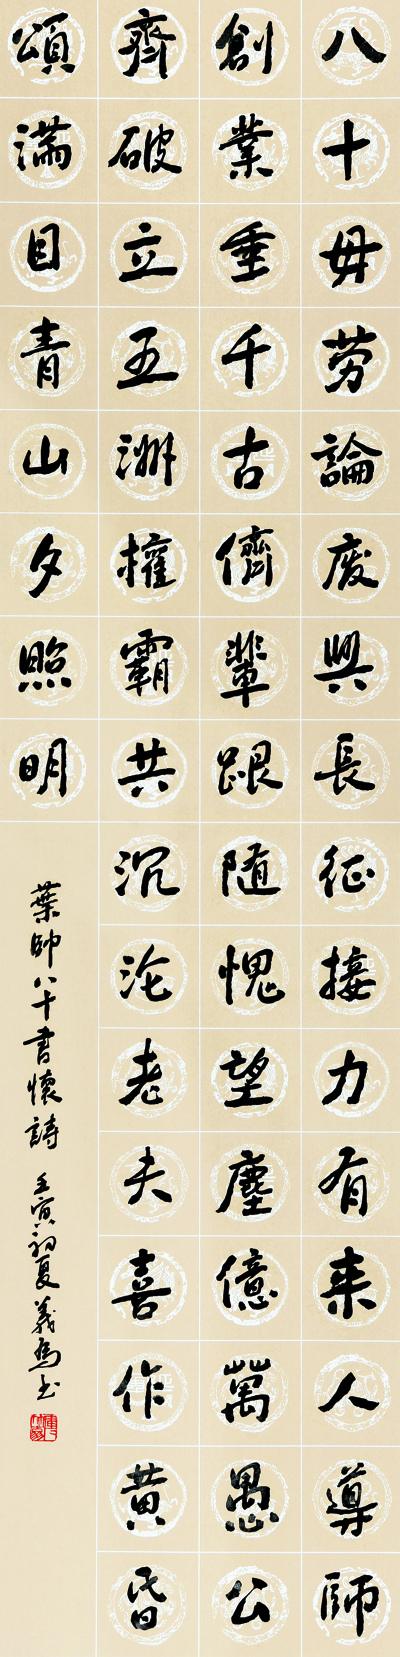 八十毋劳論废興長征接力有来人導師
創業垂千古儕輩跟随愧望塵億萬愚公
齊破立五洲權霸共沉沦老夫喜作黄昏
頌滿目青山夕照明
葉帥八十書懷詩 壬寅初夏義书